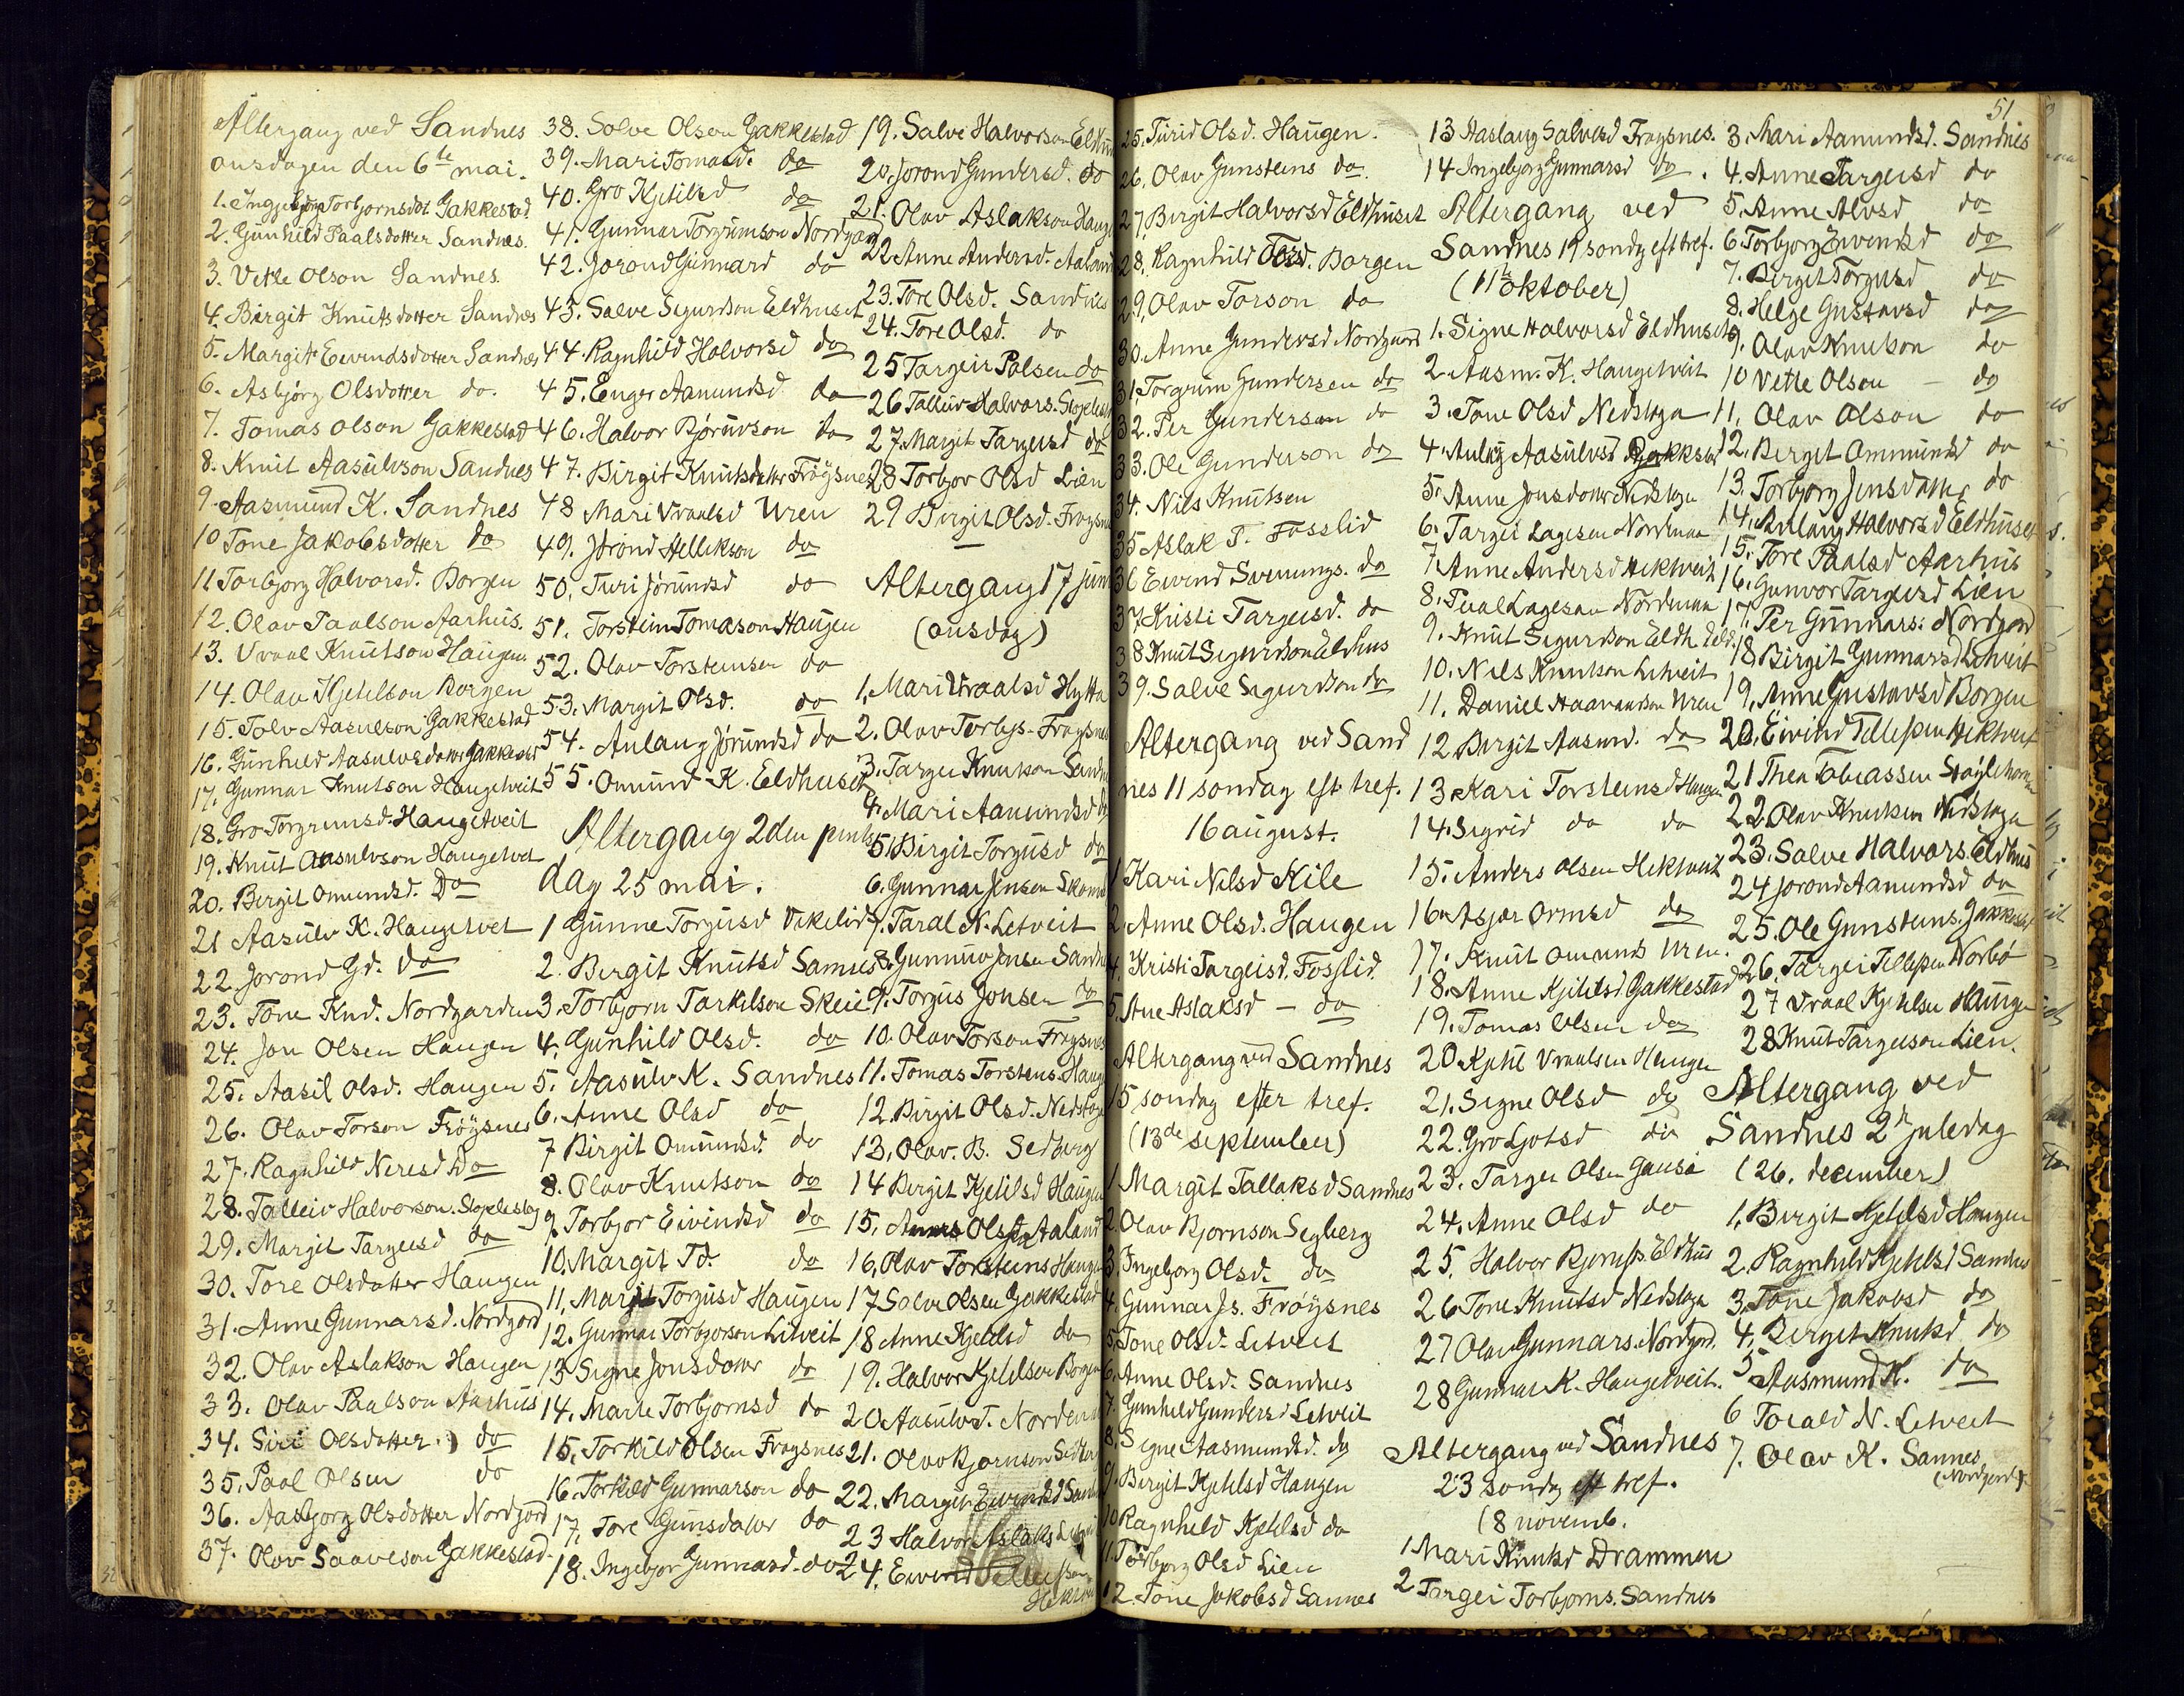 Altergang ved Sandnes
onsdagen den 6te mai.
1. Ingebjørg Torbjornsdot Gakkestad
2. Gunhild Paalsdotter Sandnes.
3. Vetle Olson Sandnes.
4. Birgit Knutsdotter Sandnes
5. Margit Eivindsdotter Sandnes
6. Asbjørg Olsdotter do.
7. Tomas Olson Gakkestad
8. Knut Aasulvson Sandnes
9. Aasmund K. Sandnes
10 Tone Jakobsdotter do
11 Torbjorg Halvorsd. Borgen
12. Olav Paalson Aarhus.
13. Vraal Knutson Haugen
14. Olav Kjetilson Borgen
15. Tolv Aasulson Gakkestad
16. Gunhild Aasulvsdotr Gakkestad
17. Gunnar Knutson Haugetveit
18. Gro Torgrimsd. Haugetveit
19. Knut Aasulvson Haugetvet
20. Birgit Omundsd. Do
21 Aasulv K. Haugetvet
22. Jorond Gd. do
23. Tone Knd. Nordgarden
24. Jon Olsen Haugen
25. Aasil Olsd. Haugen
26. Olav Torson Frøysnes
27. Ragnhild Neresd Do
28. Talleiv Halvorson. Stoplestog
29. Margit Targeisd do
30. Tore Olsdatter Haugen
31. Anne Gunnarsd. Nordgord
32. Olav Aslakson Haugen
33. Olav Paalson Aarhus
34. Siri Olsdotter do
35. Paal Olsen do
36. Aasbjorg Olsdotter Nordjord
37. Olav Saaveson Gakkestad.
38. Solve Olson Gakkestad
39. Mari Tomasd. do
40. Gro Kjetilsd do
41. Gunnar Torgrimson Nordgard
42. Jorond Gunnard do
43. Salve Sigurdson Eldhuset
44. Ragnhild Halvorsd do
45. Enger Aamundsd do
46. Halvor Bjørnvson do
47. Birgit Knutsdotter Frøysnes
48 Mari Vraalsd Uren
49. Jørond Hellikson do
50. Turi Jørundsd do
51. Torstein Tomason Haugen
52. Olav Torsteinsen do
53. Margit Olsd. do
54. Aulaug Jørundsd do
55. Omund K. Eldhuset
Altergang 2den pints
dag 25 mai.
1 Gunne Torgusd Vikelid
2. Birgit Knutsd Sannes
3. Torbjorn Tarkilson Skeie
4. Gunhild Olsd. do
5. Aasulv K. Sandnes
6. Anne Olsd do
7 Birgit Omundsd. do
8. Olav Knutson do
9. Torbjor Eivindsd do
10. Margit Td. do
11. Margit Torgusd Haugen
12. Gunnar Torbjorson Litveit
13 Signe Jonsdotter do
14. Marte Torbjornsd do
15. Torkild Olsen Froysnes
16. Torkild Gunnarson do
17. Tore Gunsdatter do
18. Ingebjor Gunnarsd. do
19. Salve Halvorson Eldhus
20. Jorond Gundersd. do
21. Olav Aslakson Haug
22 Anne Andersd. Aaland
23. Tore Olsd. Sandnes
24. Tore Olsd. do
25 Targeir Palsen do
26 Talleiv Halvors. Stoplest
27. Margit Targeisd do
28 Torbjor Olsd Lien
29 Birgit Olsd. Froysn
Altergang 17 juni
(onsdag)
1. Mari Vraalsd Hytta
2. Olav Torbjs. Froysnes
3. Targei Knutson Sandn
4. Mari Aamundsd do
5. Birgit Torgusd do
6. Gunnar Jonsen
7. Taral N. Letveit
8. Gunnuv Jonsen Sandn
9. Torgus Jonsen do
10. Olav Torson Froysnes
11. Tomas Torsteins. Haug
12. Birgit Olsd. Nedstoga
13. Olav. B. Sedberg
14 Birgit Kjetilsd Haugen
15. Olsd Aaland
16. Olav Torsteins Haugen
17 Solve Olsen Gakkestad
18 Anne Kjetilsd do
19. Halvor Kjetilson Borgen
20 Aasulv T. Nordenn
21. Olav Bjornson Sedber
22. Margit Eivindsd Sand
23 Halvor Aslaks L
24. Eivind Tellefsen
Hektveit
51
25. Turid Olsd. Haugen.
26. Olav Gunsteins do.
27. Birgit Halvorsd Eldhuset
28. Ragnhild Torsd. Borgen
29. Olav Torson do
30. Anne Gundersd Nordgaard
31 Torgrim Gundersen do
32. Per Gunderson do
33. Ole Gunderson do
34. Nils Knutsen
35 Aslak T. Fosslid
36 Eivind Svenungs. do
37 Kristi Targeisd. do
38 Knut Sigurdson Eldhus
39. Salve Sigurdson do
Altergang ved Sand
nes 11 sondag eft. tref.
16 august.
1 Kari Nilsd Kile
2. Anne Olsd. Haugen
4. Kristi Targeisd. Fosslid.
5. Ane Aslaksd - do
Altergang ved Sandnes
15 sondag efter tref.
(13de september)
1 Margit Tallaksd Sandnes
2. Olav Bjornson Segberg
3. Ingebjorg Olsd. do
4. Gunnar Js. Frøysnes
5. Tone Olsd. Letveit
6. Anne Olsd. Sandnes
7. Gunhild Gundersd Letveit
8. Signe Aasmundsd. do
9. Birgit Kjetilsd Haugen
10 Ragnhild Kjetilsd do
11. Torbjorg Olsd Lien
12. Tone Jakobsd Sannes
13 Aaslaug Salvesd Froysnes.
14 Ingebjorg Gunnarsd do.
Altergang ved
Sandnes 19 sondg eft tref.
(11te oktober)
1. Signe Halvorsd Eldhuset
2. Aasm. K. Haugetveit
3. Tone Olsd Nedstoga
4. Aulug Aasulvsd Gakkstad
5. Anne Jonsdotter Nedstoga
6. Targei Lagesen Nordmun
7. Anne Andersd Hektveit
8. Paal Lagesen Nordmun
9. Knut Sigurdson Eldh.
10. Nils Knutson Letveit
11. Daniel Haavardson Uren
12. Birgit Aasmd. do
13. Kari Torsteinsd Haugen
14. Sigrid do do
15. Anders Olsen Hektveit
16. Asjer Ormsd do
17. Knut Omunds Uren.
18. Anne Kjetilsd Gakkestad
19. Tomas Olsen do
20 Kjetil Vraalsen Haugen
21. Signe Olsd do
22. Gro Ljotsd do
23. Targei Olsen Gauså
24. Anne Olsd do
25. Halvor Bjornss. Eldhus
26 Tone Knutsd Nedstoga
27 Olav Gunnars. Nordgrd.
28 Gunnar K. Haugetveit.
Altergang ved Sandnes
23 sondg eft tref.
(8 novemb.
1 Mari Knutsd Drammen
2 Targei Torbjorns. Sandnes
3. Mari Aamundsd. Sandnes
4. Anne Targeisd do
5. Anne Alvsd do
6. Torbjorg Eivendsd do
7. Birgit Torgusd do
8. Helge Gustavsd do
9. Olav Knutson do
10 Vetle Olson - do
11. Olav Olson do
12. Birgit Ommundsd do
13. Torbjorg Jonsdottr do
14. Aulaug Halvorsd Eldhuset
15. Tore Paalsd Aarhus
16. Gunvor Targeisd Lien
17. Per Gunnars: Nordgord
18. Birgit Gunnarsd Letveit
19. Anne Gustavsd Borgen
20. Eivind Tellefsen Hektveit
21 Thea Tobiassen
22. Olav Knutsen Nedstoga
23. Salve Halvors. Eldhus
24 Jorond Aamundsd do
25. Ole Gunsteins. Gakkestad
26. Targei Tellefsen Norbø
27 Vraal Kjetilsen Haugen
28 Knut Targeison Lien.
Altergang ved
Sandnes 2d juledag
(26. december)
1. Birgit Kjetilsd Haugen
2. Ragnhild Kjetilsd Sandnes
3. Tone Jakobsd do
4. Birgit Knutsd do
5 Aasmund K. do
6 Torald N. Letveit
7. Olav K. Sannes
(Nordgord).